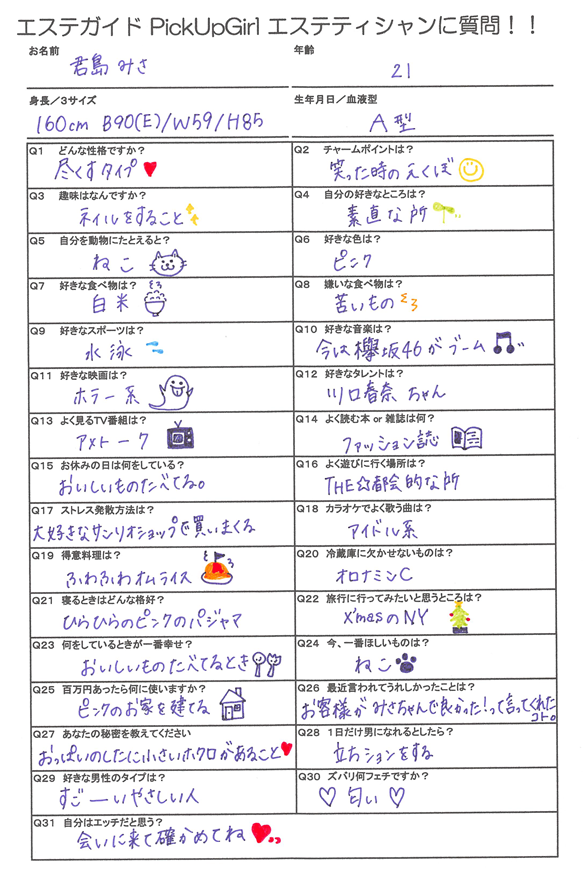 エステガイド PickUpGirl エステティシャンに質問！！
お名前
君島 みさ
年齢
21
身長／3サイズ
160cm B90(E)/W59/H85
生年月日／血液型
A型
Q1 どんな性格ですか？
尽くすタイプ
Q2 チャームポイントは？
笑った時のえくぼ
Q3 趣味はなんですか？
ネイルをすること
Q4 自分の好きなところは？
素直な所
Q5 自分を動物にたとえると？
ねこ
Q6 好きな色は？
ピンク
Q7 好きな食べ物は？
白米
Q8 嫌いな食べ物は？
苦いもの
Q9 好きなスポーツは？
水泳
Q10 好きな音楽は？
今は欅坂46がブーム
Q11 好きな映画は？
ホラー系
Q12 好きなタレントは？
川口春奈ちゃん
Q13 よく見るTV番組は？
アメトーク
Q14 よく読む本 or 雑誌は何？
ファッション誌
Q15 お休みの日は何をしている？
おいしいものたべてる。
Q16 よく遊びに行く場所は？
THE☆都会的な所
Q17 ストレス発散方法は？
大好きなサンリオショップで買いまくる
Q18 カラオケでよく歌う曲は？
アイドル系
Q19 得意料理は？
ふわふわオムライス
Q20 冷蔵庫に欠かせないものは？
オロナミンC
Q21 寝るときはどんな格好？
ひらひらのピンクのパジャマ
Q22 旅行に行ってみたいと思うところは？
X'masのNY
Q23 何をしているときが一番幸せ？
おいしいものたべてるとき
Q24 今、一番ほしいものは？
ねこ
Q25 百万円あったら何に使いますか？
ピンクのお家を建てる
Q26 最近言われてうれしかったことは？
お客様がみさちゃんで良かった！って言ってくれた
コト。
Q27 あなたの秘密を教えてください
おっぱいのしたに小さいホクロがあること
Q28 1日だけ男になれるとしたら？
立ちションをする
Q29 好きな男性のタイプは？
すごーいやさしい人
Q30 ズバリ何フェチですか？
♡匂い♡
Q31 自分はエッチだと思う？
会いに来て確かめてね